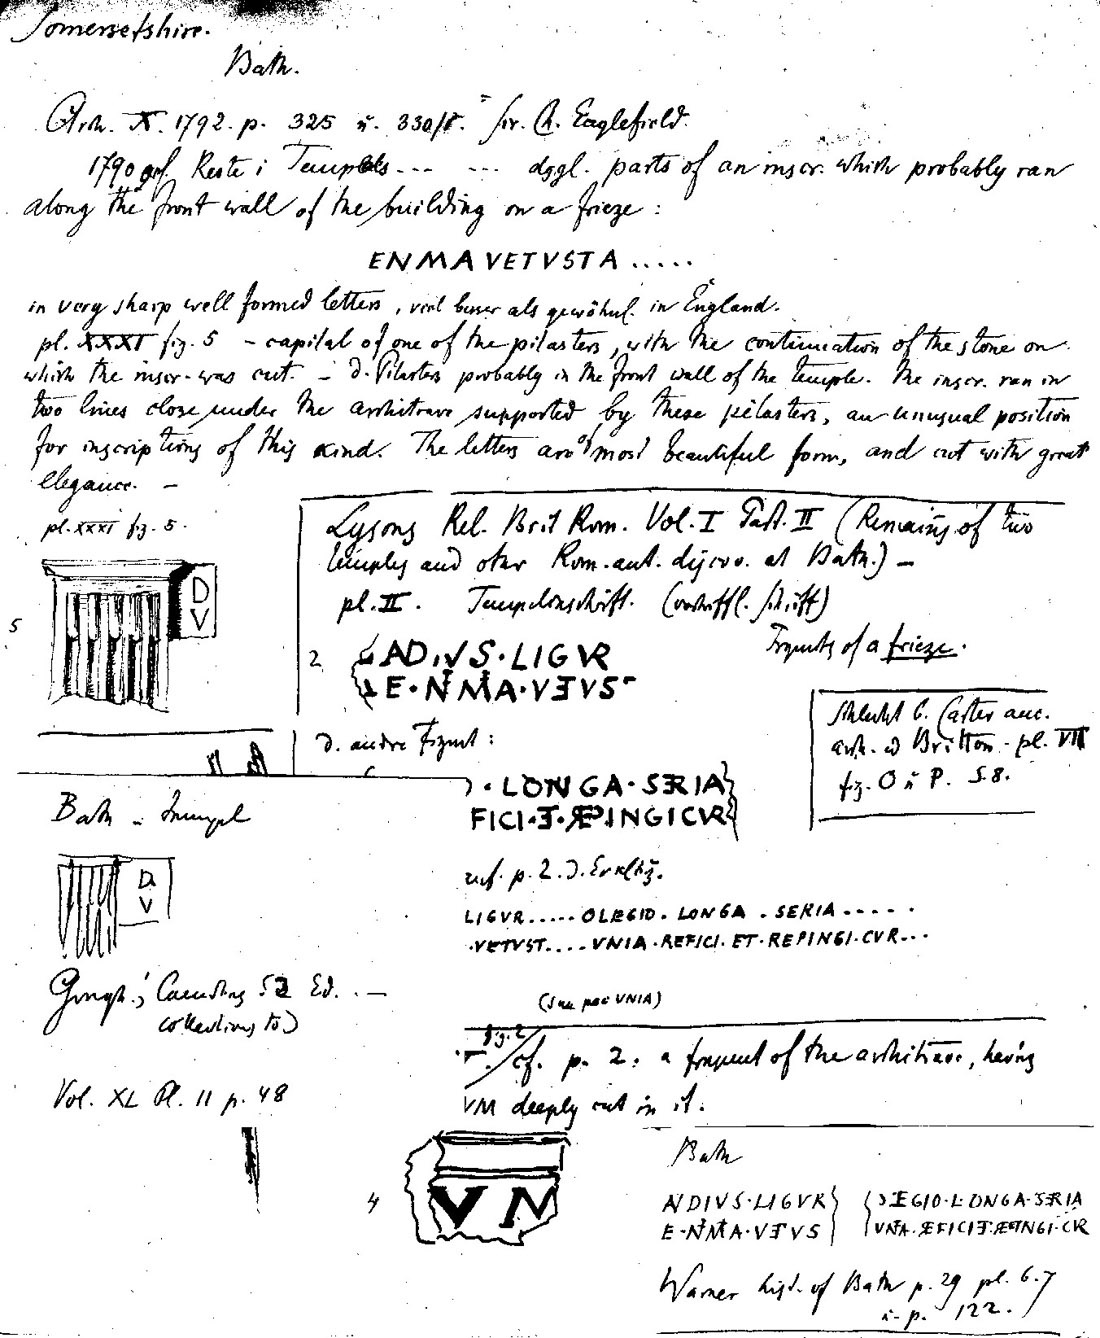 Somersetshire.
Bath.
Arch. X. 1792. p. 325 u. 330/1. Sir. H. Englefield.
1790 gef. Reste i Tempels --- --- dggl. parts of an inscr. which probably ran
along the front wall of the building on a frieze:
ENMAVETVSTA .....
in very sharp well formed letters, viel besser als gewöhnl. in England.
pl. XXXI fig. 5 - capital of one of the pilasters, with the continuation of the stone on
which the inscr. was cut. - d. Pilasters probably in the front wall of the temple. The inscr. ran in
two lines close under the architrave supported by these pilasters, an unusual position
for inscriptions of this kind. The letters are of most beautiful form, and cut with great
elegance. -
pl. XXXI fig. 5.
5
D
V
Lysons Rel. Brit Rom. Vol. I Part. II (Remains of two
temples and other Rom. ant. discov. at Bath.) -
pl. II. Tempelinschrift.
Fragmts of a frieze.
2
ADIVS·LIGVR
E·NMA·VETVS
d. andre Fragmt:
·LONGA·SERIA
FICI·ET·REPINGICVR
Britton - pl. VII
fig. O u P. S. 8.
Bath - Tempel
D
V
p. 2. d. Erklärg.
LIGVR.....OLEGIO.LONGA.SERIA.....
.VETVST....VNIA.REFICI.ET.REPINGI.CVR...
Gough's Camdens Ed. -
collections to)
fig. 2
cf. p. 2: a fragment of the architrave, having
VM deeply cut in it.
Vol. XL Pl. 11 p. 48
4
VM
Bath
ADIVS·LIGVR
E·NMA·VETVS
LEGIO·LONGA·SERIA
VNIA·REFICI·ET·REPINGI·CVR
Warner hist. of Bath p. 29 pl. 6.7
u. p. 122.